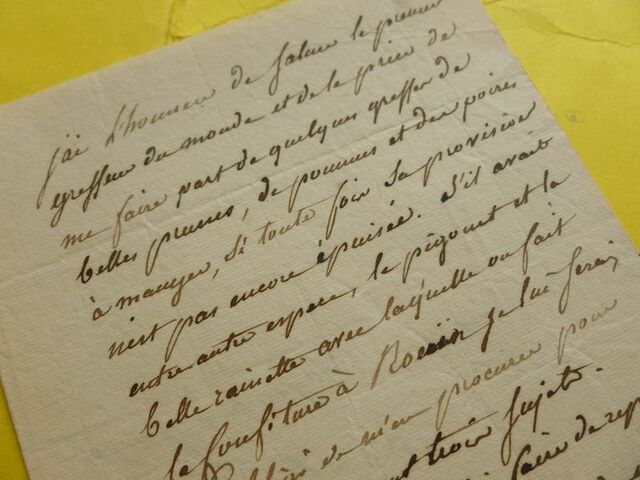 j'ai l'honneur de saluer le premier
greffeur du monde et de le prier de
me faire part de quelques greffes de
belles prunes, de pommes et des poires
à manger, si toute fois sa provision
n'est pas encore épuisée. S'il avait
entre autre espece, le pigonet et la
belle rainette avec laquelle on fait
la confiture à Rouen je lui serai
de m'en procurer pour
trois sujets.
faire de